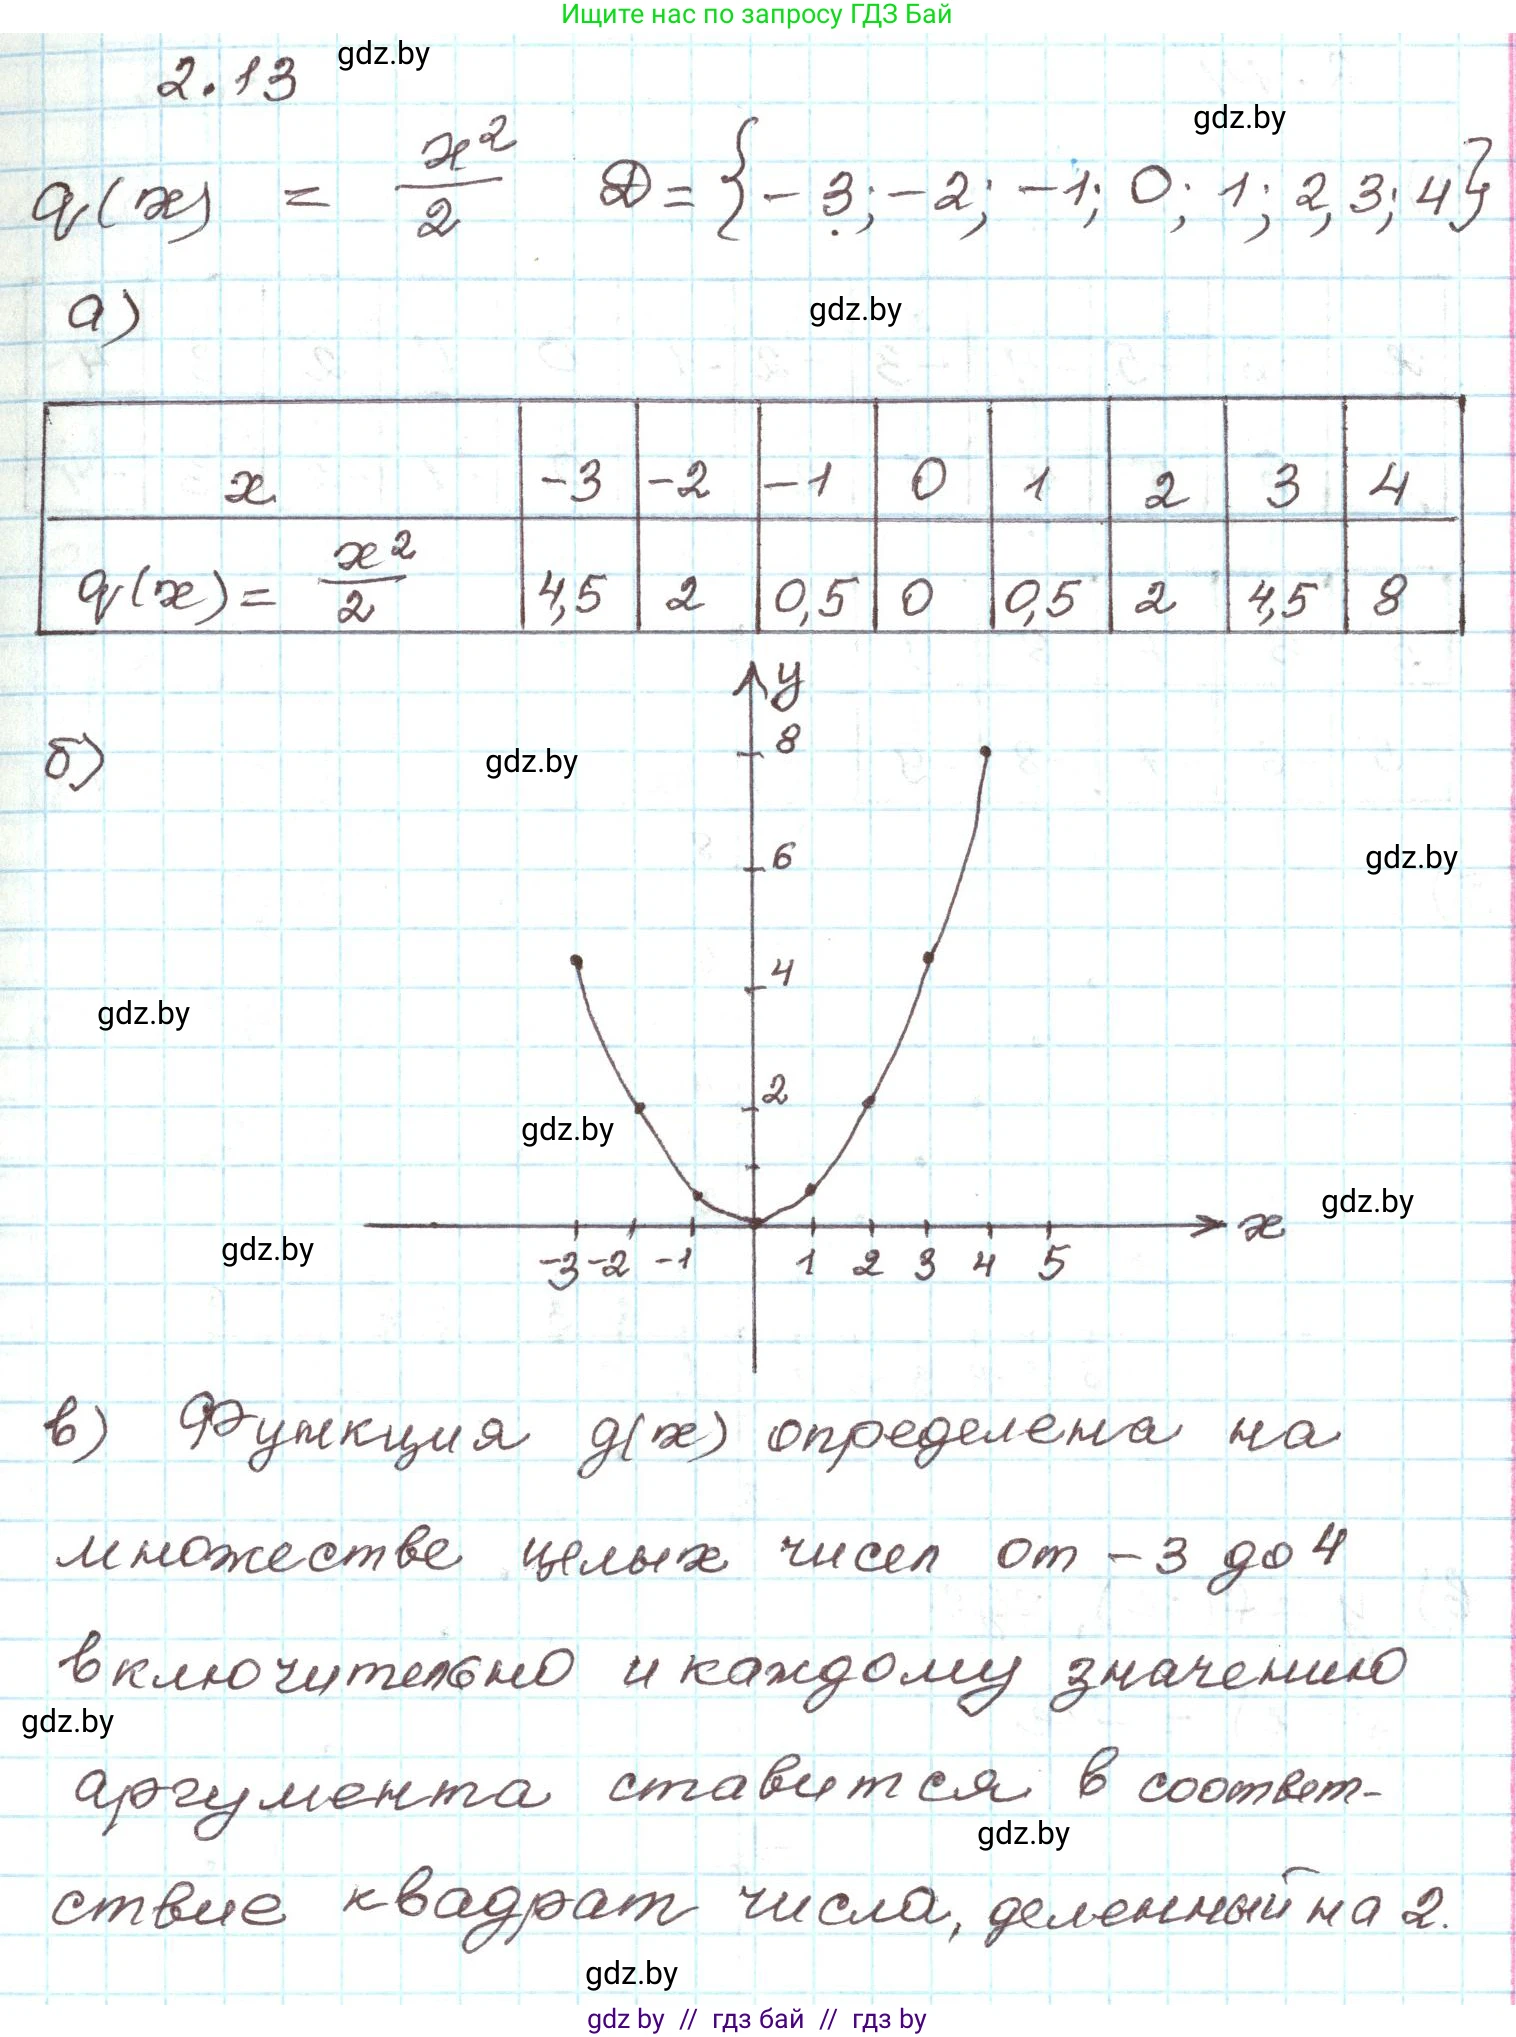 Ищите нас по запросу ГДЗ Бай
gdz.by
2.13
gdz.by
q(x) = x²/2 D = {-3; -2; -1; 0; 1; 2, 3; 4}
а)
gdz.by
x -3 -2 -1 0 1 2 3 4
q(x) = x²/2 4,5 2 0,5 0 0,5 2 4,5 8
y
б)
gdz.by
8
6
gdz.by
4
gdz.by
2
gdz.by
gdz.by
x
gdz.by
-3 -2 -1 1 2 3 4 5
в) Функция g(x) определена на
множестве целых чисел от -3 до 4
включительно и каждому значению
gdz.by
аргумента ставится в соответ-
gdz.by
ствие квадрат числа, деленный на 2.
gdz.by
gdz by // гдз бай // гдз by